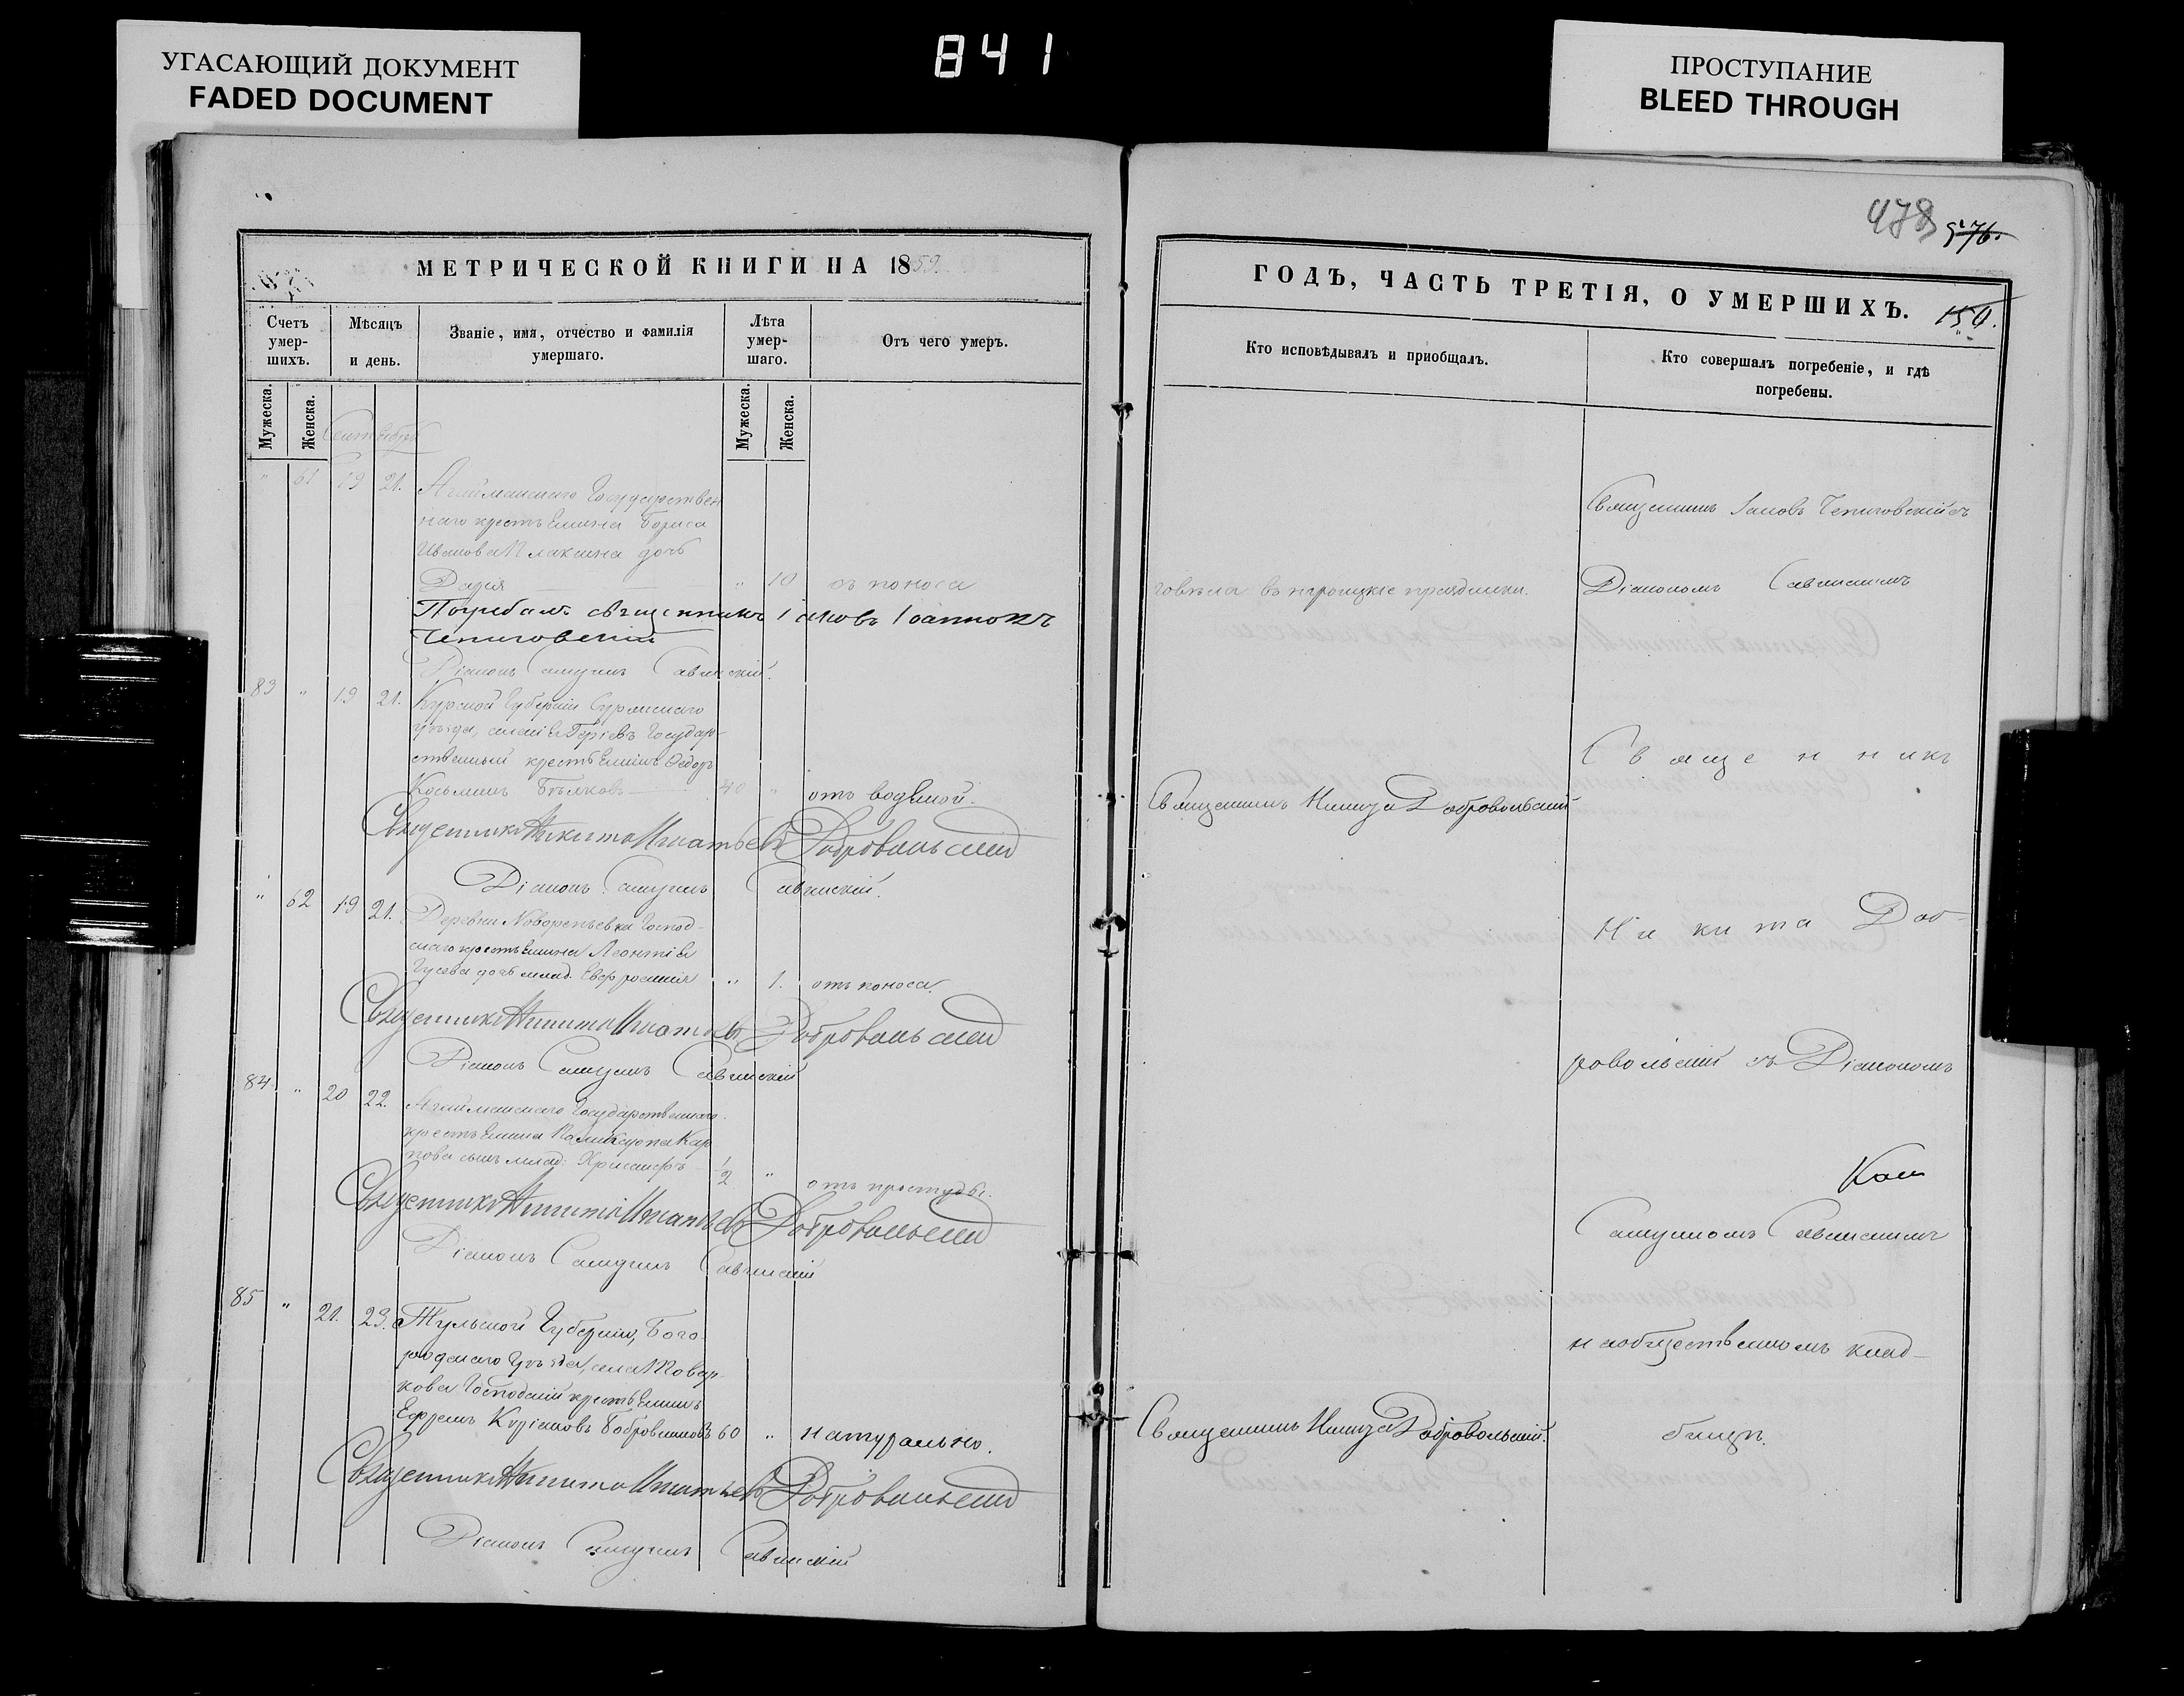 УГАСАЮЩИЙ ДОКУМЕНТ
FADED DOCUMENT
841
ПРОСТУПАНИЕ
BLEED THROUGH
478
МЕТРИЧЕСКОЙ КНИГИ НА 1859.
Счетъ умер-шихъ.
Мѣсяцъ и день.
Званіе, имя, отчество и фамилія умершаго.
Лѣта умер-шаго.
Отъ чего умеръ.
Мужеска.
Женска.
Мужеска.
Женска.
Сентябрь
" 61 19 21. Агайманскаго Государствен
наго крестьянина Бориса
Иванова Плаксина дочь
Дарія " 10 отъ поноса
Погребалъ священникъ Іаковъ Іоанновъ
Чепиговскій
Діаконъ Самуилъ Савинскій.
83 " 19 21. Курской Губерніи
уѣзда, Государ-
ственный крестьянинъ Федоръ
Косьминъ Бѣлковъ 40 " отъ водяной.
Священникъ Никита Игнатьевъ Добровольскій
Діаконъ Самуилъ Савинскій.
" 62 19 21. Деревни Новорепьевки Господ-
скаго крестьянина Леонтія
Гусева дочь млад. Евфросинія " 1. отъ поноса.
Священникъ Никита Игнатьевъ Добровольскій
Діаконъ Самуилъ Савинскій
84 " 20 22. Агайманскаго Государственнаго
крестьянина Кар
пова сынъ млад. Хрисанфъ 1/2 " отъ простуды.
Священникъ Никита Игнатьевъ Добровольскій
Діаконъ Самуилъ Савинскій
85 " 21. 23. Тульской Губерніи, Бого-
родскаго Уѣзда, села Товар-
кова Господскій крестьянинъ
Ефремъ Куріановъ Бобровниковъ 60 " натурально.
Священникъ Никита Игнатьевъ Добровольскій
Діаконъ Самуилъ Савинскій
ГОДЪ, ЧАСТЬ ТРЕТІЯ, О УМЕРШИХЪ.
Кто исповѣдывалъ и приобщалъ.
Кто совершалъ погребеніе, и гдѣ погребены.
Священникъ Іаковъ Чепиговскій съ
говѣла въ троицкіе праздники. Діакономъ Савинскимъ
Священникъ
Священникъ Никита Добровольскій
Никита Доб-
ровольскій съ Діакономъ
Самуиломъ Савинскимъ
на общественномъ клад-
Священникъ Никита Добровольскій. бищѣ.